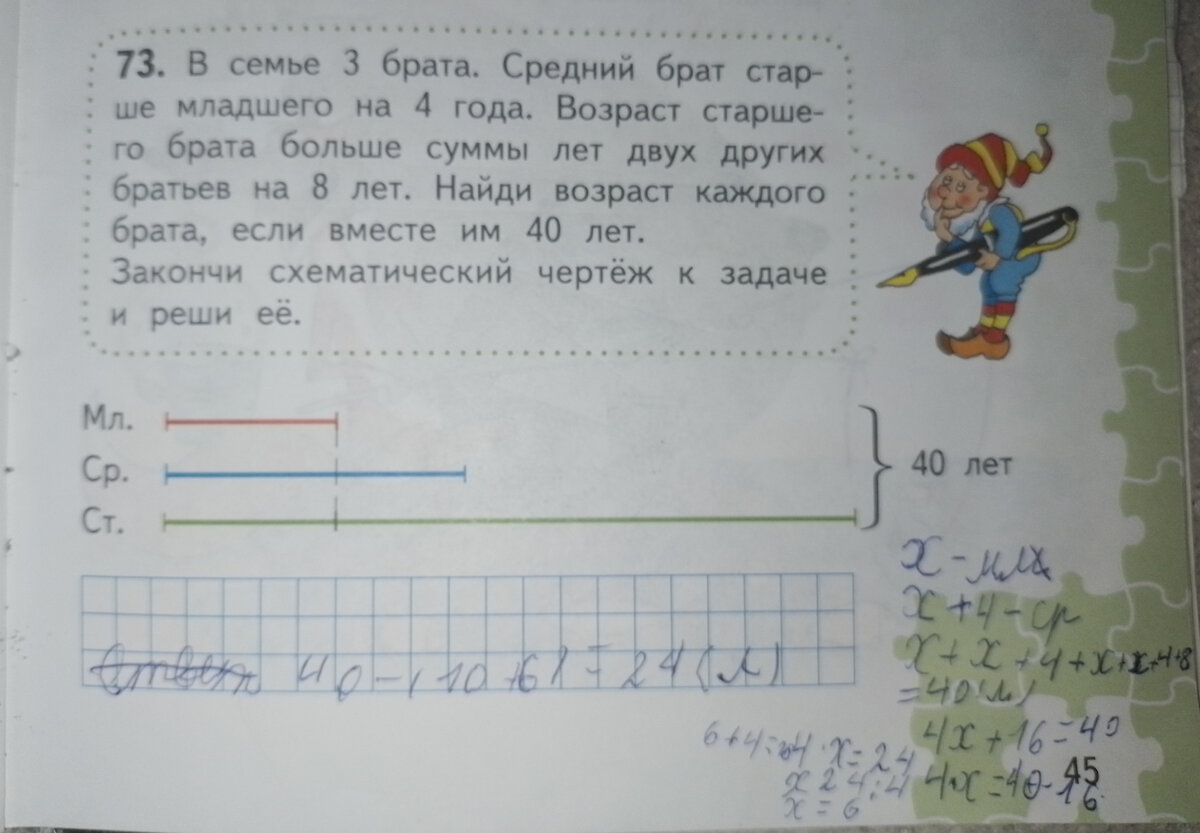 73. В семье 3 брата. Средний брат стар-
ше младшего на 4 года. Возраст старше-
го брата больше суммы лет двух других
братьев на 8 лет. Найди возраст каждого
брата, если вместе им 40 лет.
Закончи схематический чертёж к задаче
и реши её.
Мл.
Ср.
40 лет
Ст.
х - мл
х + 4 - ср
х + х + 4 + х + х + 4 + 8
= 40 (л)
40 - (10 + 6) = 24 (л)
4х + 16 = 40
4х = 40 - 16
6 + 4 =
4 · х = 24
х 24 : 4
х = 6
45